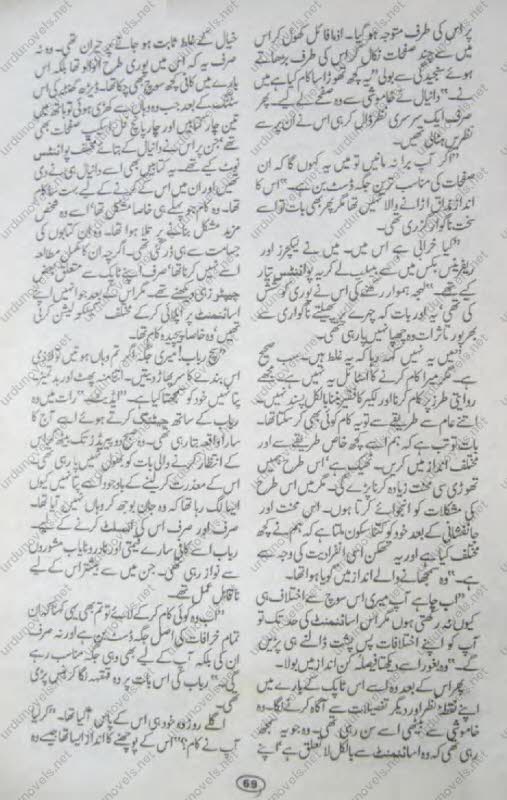 پر اس کی طرف متوجہ ہو گیا۔ اذما فائل کھول کر اس
میں سے چند صفحات نکال کر اس کی طرف بڑھاتے
ہوئے سنجیدگی سے بولی "یہ کچھ تھوڑا سا کام کیا ہے میں
نے۔" دانیال نے خاموشی سے وہ صفحے لے لیے۔ پھر
صرف ایک سرسری نظر ڈال کر ہی اس نے ان پر سے
نظریں ہٹالی تھیں۔
"اگر آپ برا نہ مانیں تو میں یہ کہوں گا کہ ان
صفحات کی مناسب ترین جگہ ڈسٹ بن ہے۔" اس کا
انداز مذاق اڑانے والا نہیں تھا مگر پھر بھی بات تو اسے
سخت ناگوار گزری تھی۔
"کیا خرابی ہے اس میں۔ میں نے لیکچرز اور
ریفرنس بکس میں سے ہیلپ لے کر یہ پوائنٹس تیار
کیے تھے۔" لہجہ ہموار رکھنے کی اس نے پوری کوشش
کی تھی یہ اور بات کہ چہرے پر پھیلتے ناگواری سے
بھرپور تاثرات وہ چھپا نہیں پا رہی تھی۔
"میں یہ نہیں کہہ رہا کہ یہ غلط ہیں۔ سب صحیح
ہے۔ مگر میرا کام کرنے کا اسٹائل یہ نہیں ہے۔ مجھے
روایتی طرز پر کام کرنا اور لکیر کا فقیر بننا بالکل پسند نہیں۔
اتنے عام سے طریقے سے تو یہ کام کوئی بھی کر سکتا تھا۔
بات تو تب ہے کہ ہم اسے کچھ خاص طریقے سے اور
مختلف انداز میں کریں۔ ٹھیک ہے اس طرح ہمیں
تھوڑی سی محنت زیادہ کرنا پڑے گی۔ مگر میں اس طرح
کی مشکلات کو انجوائے کرتا ہوں۔ اس محنت اور
جانفشانی کے بعد خود کو کتنا سکون ملتا ہے کہ ہم نے کچھ
مختلف کیا ہے اور یہ محض اسی انفرادیت کی وجہ سے
ہے۔" وہ سمجھانے والے انداز میں گویا ہوا تھا۔
"اب چاہے آپ میری اس سوچ سے اختلاف ہی
کیوں نہ رکھتی ہوں مگر اس اسائنمنٹ کی حد تک تو
آپ کو اپنے اختلافات پس پشت ڈالنے ہی پڑیں
گے۔" وہ بغور اسے دیکھتا فیصلہ کن انداز میں بولا۔
پھر اس کے بعد وہ اسے اس ٹاپک کے بارے میں
اپنے نقطۂ نظر اور دیگر تفصیلات سے آگاہ کرنے لگا۔ وہ
خاموشی سے بیٹھی اسے سن رہی تھی۔ وہ جو یہ سمجھ
رہی تھی کہ وہ اسائنمنٹ سے بالکل لا تعلق ہے اپنے
خیال کے غلط ثابت ہو جانے پر حیران تھی۔ وہ نہ
صرف یہ کہ اس میں پوری طرح انوالو تھا بلکہ اس
بارے میں کافی کچھ سوچ بھی چکا تھا۔ ڈیڑھ گھنٹہ کی اس
سٹنگ کے بعد جب وہ وہاں سے کھڑی ہوئی تو ہاتھ میں
تین چار کتابیں اور چار پانچ فل اسکیپ صفحات بھی
تھے جن پر اس نے دانیال کے بتائے مختلف پوائنٹس
نوٹ کیے تھے۔ یہ کتابیں بھی اسے دانیال ہی نے دی
تھیں اور ان میں اس کے کرنے کے لیے بہت سا کام
تھا۔ وہ کام جو پہلے ہی خاصا مشکل تھا، اسے وہ شخص
مزید مشکل بنانے پر تلا ہوا تھا۔ وہ ان کتابوں کی
جسامت سے ہی ڈر گئی تھی۔ اگرچہ ان کا مکمل مطالعہ
اسے نہیں کرنا تھا، صرف اپنے ٹاپک سے متعلق بعض
چیپٹرز ہی دیکھنے تھے۔ مگر اس کے بعد جو انہیں اپنے
اسائنمنٹ پر اپلائی کر کے مختلف کیلکولیشن کرنی
تھیں، وہ خاصا پیچیدہ کام تھا۔
"سچ رباب! میری جگہ اگر تم وہاں ہوتیں تو لازمی
اس بندے کا سر پھاڑ دیتیں۔ اتنا منہ پھٹ اور بدتمیز،
پتا نہیں خود کو سمجھتا کیا ہے۔" ایڈیٹ۔" رات میں وہ
رباب کے ساتھ چیٹنگ کرتے ہوئے اسے آج کا
سارا واقعہ بتا رہی تھی۔ وہ صبح دو پیریڈز تک بیٹھ کر اس
کے انتظار کرنے والی بات کو بھول نہیں پا رہی تھی۔
اس کے معذرت کر لینے کے باوجود اسے پتا نہیں کیوں
ایسا لگ رہا تھا کہ وہ جان بوجھ کر وہاں نہیں آیا تھا۔
صرف اور صرف اس کی انسلٹ کرنے کے لیے۔
رباب اسے کافی سارے قیمتی اور نادر و نایاب مشوروں
سے نواز رہی تھی۔ جن میں سے بیشتر اس کے لیے
ناقابل عمل تھے۔
"اب وہ کوئی کام کر کے لائے تو تم بھی یہی کہنا کہ ان
تمام خرافات کی اصل جگہ ڈسٹ بن ہے اور نہ صرف
ان کی بلکہ آپ کے لیے بھی وہی جگہ مناسب رہے
گی۔" رباب کی اس بات پر وہ قہقہہ لگا کر ہنس پڑی
تھی۔
اگلے روز وہ خود ہی اس کے پاس آگیا تھا۔ "کر لیا
آپ نے کام؟" اس کے پوچھنے کا انداز ایسا تھا جیسے وہ
69
urdunovels.net